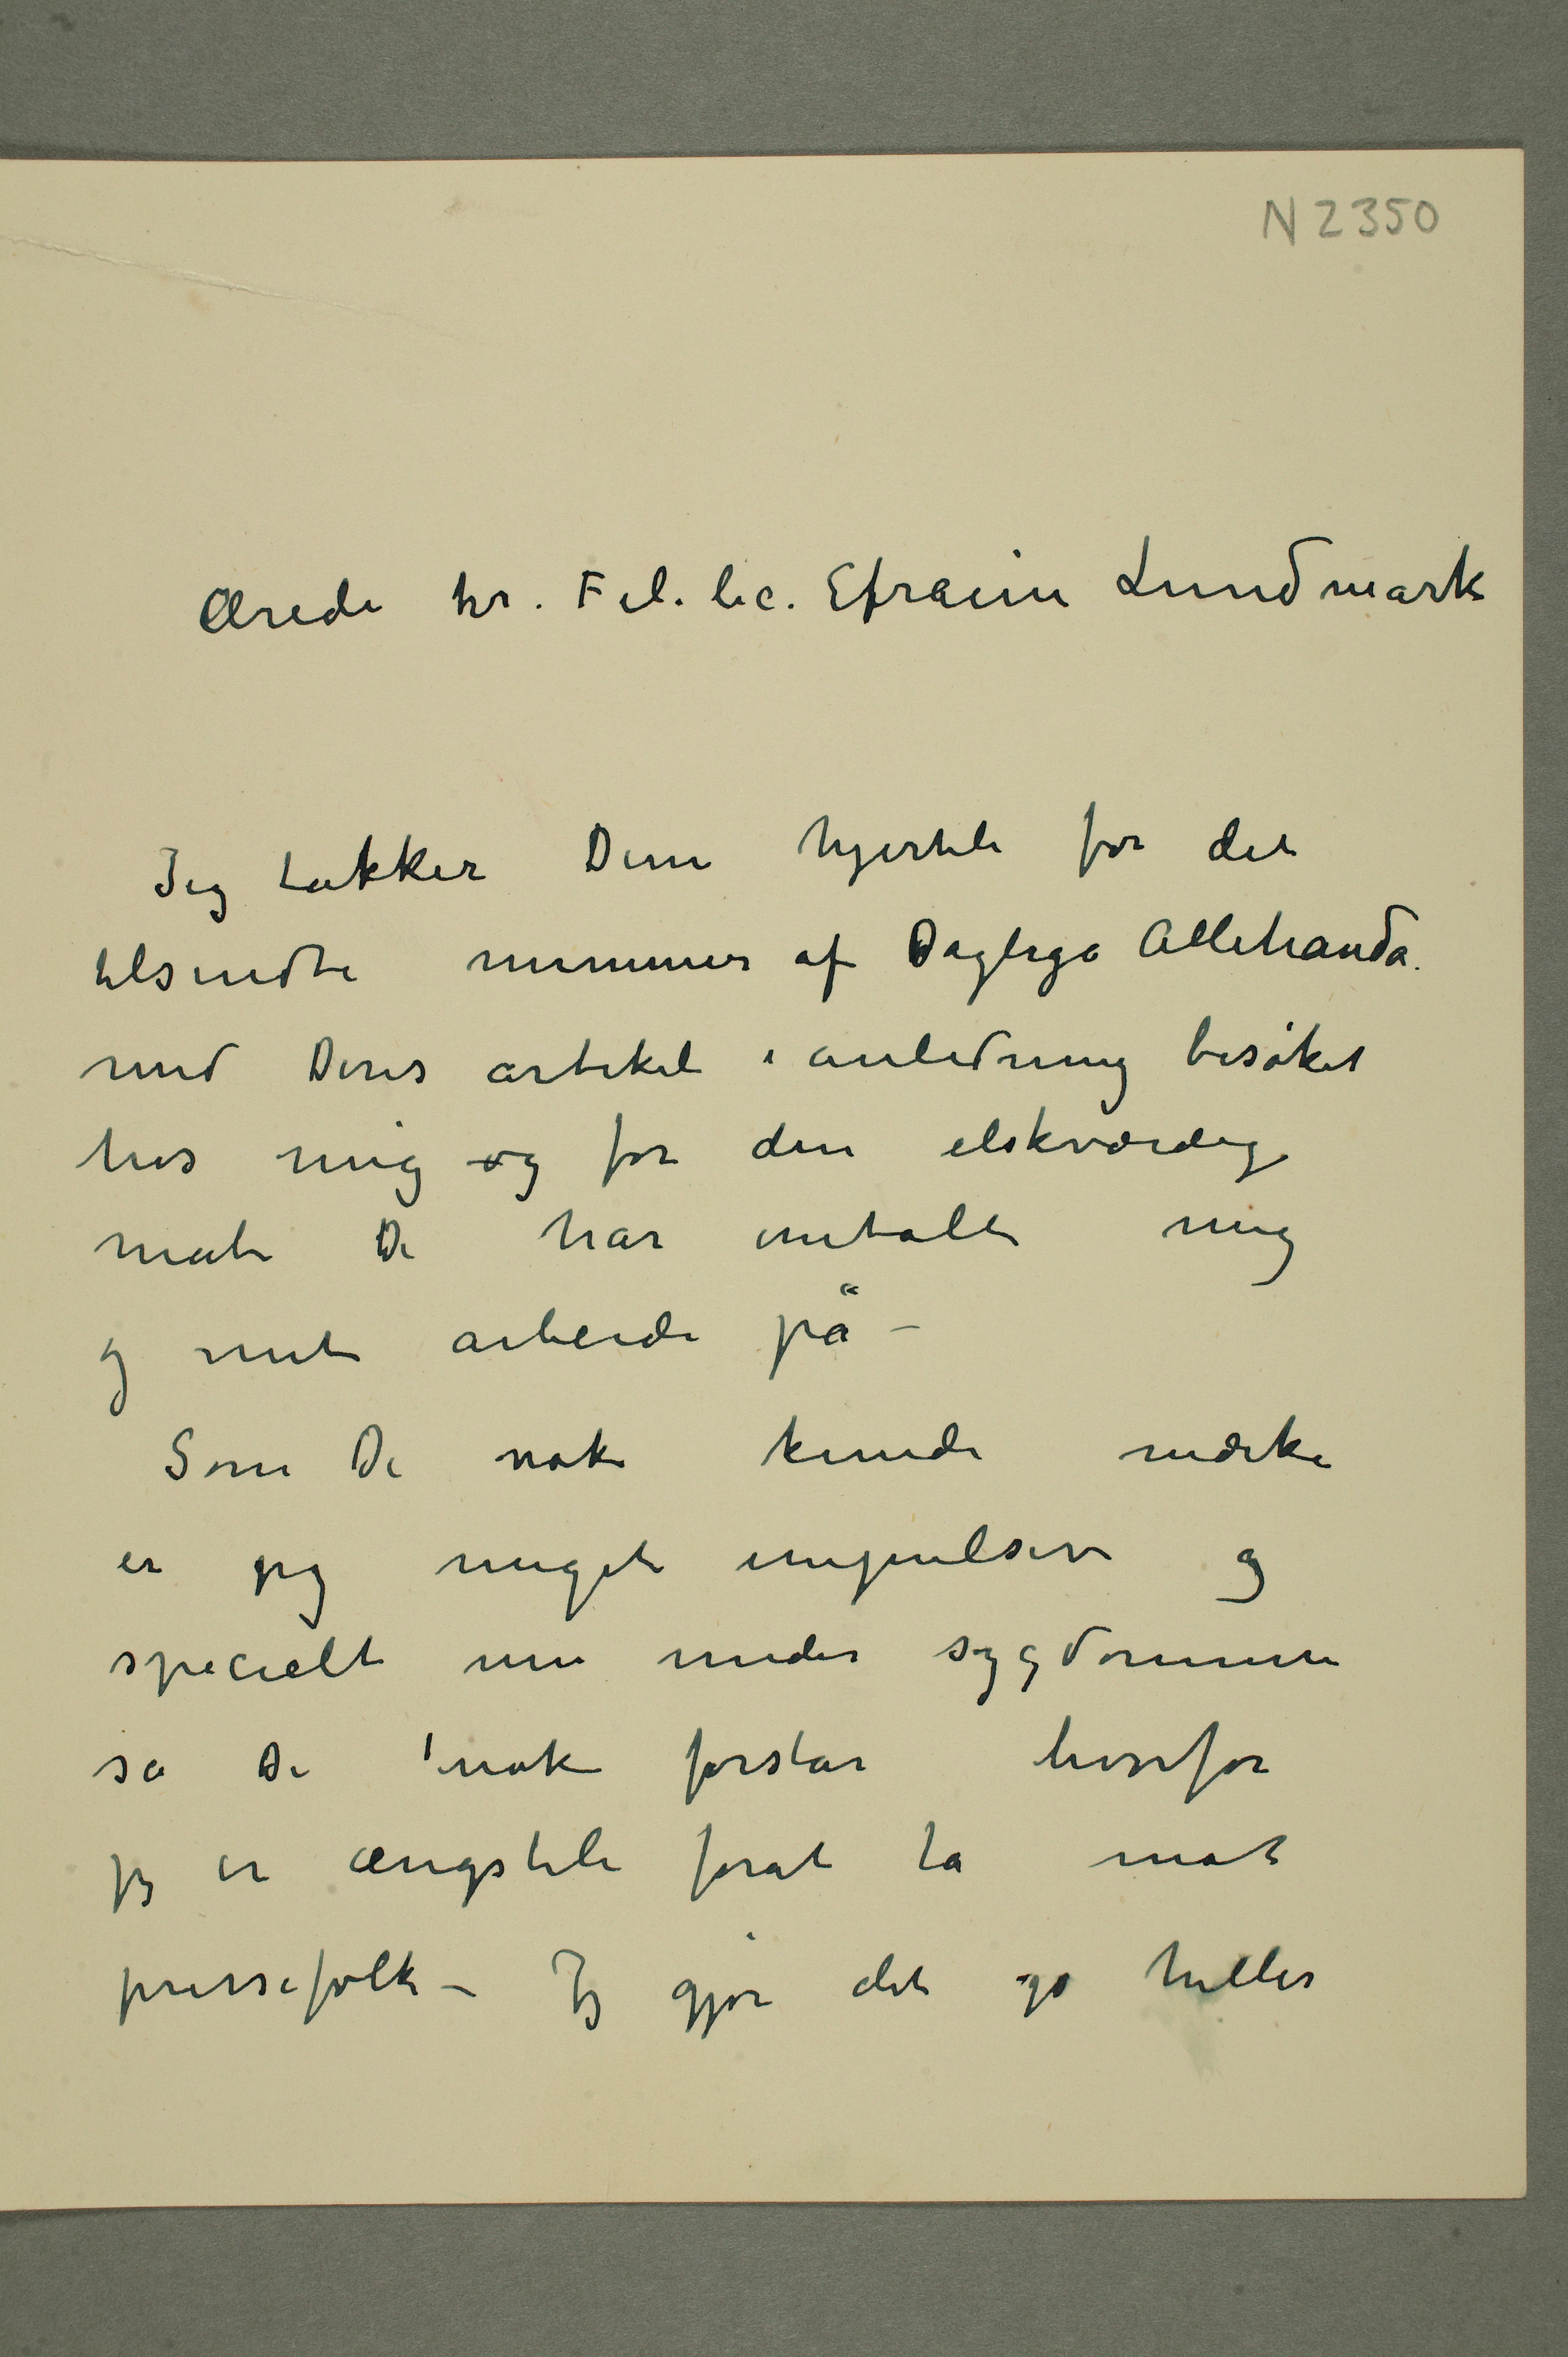 N 2350
Ærede hr. Fil. lic. Efraim Lundmark
Jeg takker Dem hjerteli for det
tilsendte nummer af Dagliga Allehanda.
med Deres artikel i anledning besøket
hos mig og for den elskværdig
måte De har omtalt mig
og mit arbeide på –
Som De nok kunde mærke
er jeg meget impulsiv og
specielt nu under sygdommen
så De nok forstår hvorfor
jeg er ængsteli forat ta mot
pressefolk – Jeg gjør det jo heller